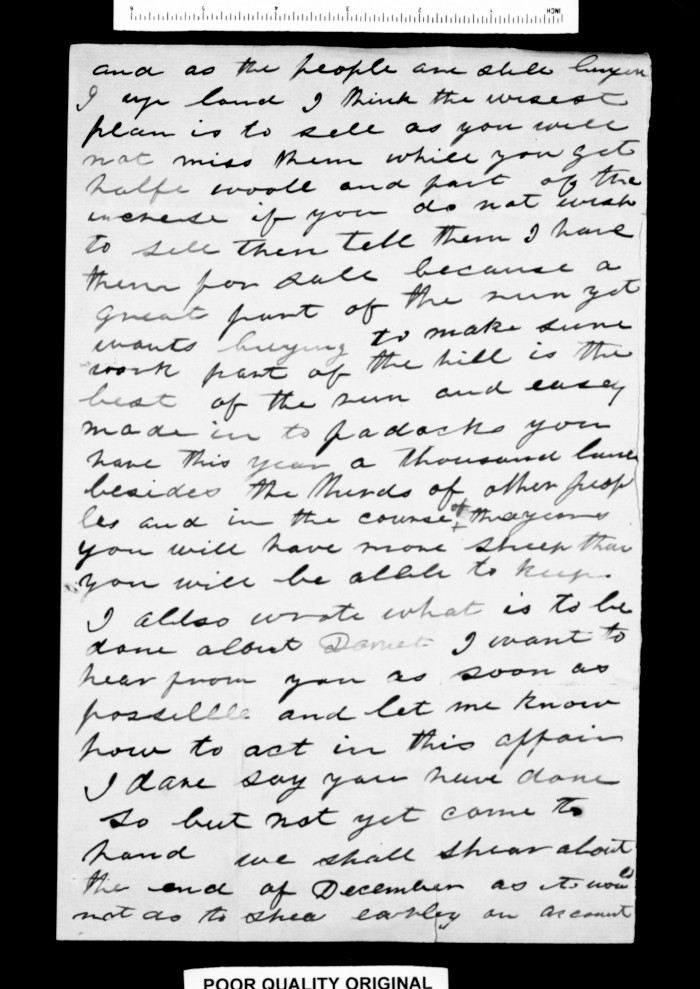 and as the people are still buying
up land I think the wisest
plan is to sell as you will
not miss them while you get
halfe wooll and part of the
increse if you do not wish
to sell then tell them I have
them for sale because a
great part of the run yet
wants buying to make sure
work part of the hill is the
best of the run and easey
made in to padocks you
have this year a thousand
besides the thirds of other peop
les and in the course of the years
you will have more sheep than
you will be abble to keep.
I allso wrote what is to be
done about I want to
hear from you as soon as
possellble and let me know
how to act in this affair
I dare say you have done
so but not yet come to
hand we shall shear about
the end of December as it
not do to shea earley on account
POOR QUALITY ORIGINAL